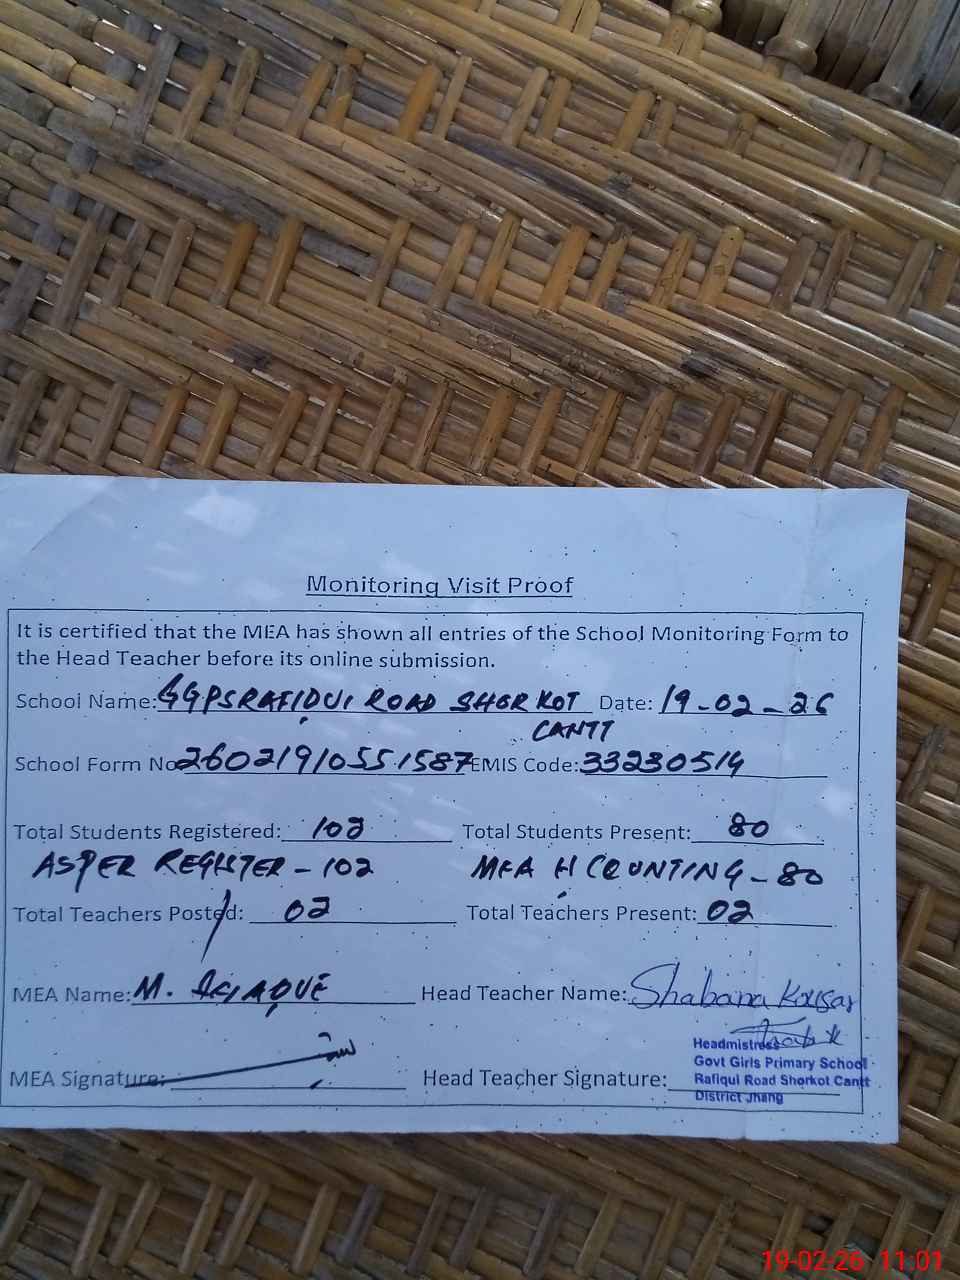 Monitoring Visit Proof
It is certified that the MEA has shown all entries of the School Monitoring Form to
the Head Teacher before its online submission.
School Name: GGPS RAFIQUI ROAD SHORKOT Date: 19-02-26
CANTT
School Form No 26021910551587 EMIS Code: 33230514
Total Students Registered: 102 Total Students Present: 80
AS PER REGISTER - 102 MEA H COUNTING - 80
Total Teachers Posted: 02 Total Teachers Present: 02
MEA Name: M. Head Teacher Name: Shabana Kousar
Headmistress
Govt Girls Primary School
MEA Signature: Head Teacher Signature: Rafiqui Road Shorkot Cantt
District Jhang
19-02-26 11:01